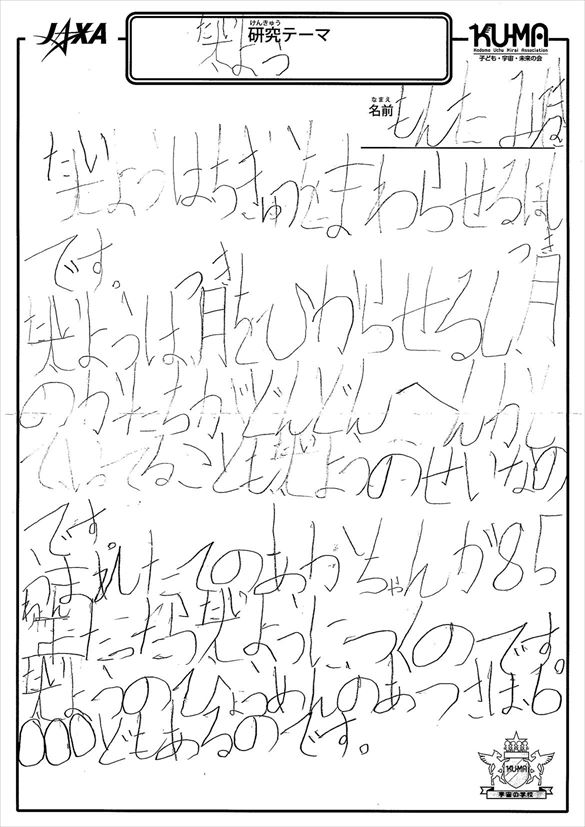 JAXA
けんきゅう
研究テーマ
たいよう
KU-MA
Kodomo Uchu Mirai Association
子ども・宇宙・未来の会
なまえ
名前
もんた
太ようはちきゅうをまわらせるほし
です。
太ようは、月をひからせるし、月
のかたちがどんどんへんかし
ていってることも太ようのせいなの
です。
うまれたてのあかちゃんが85
年たったら太ようにつくのです。
太ようのひょうめんのあつさは、6
000どもあるのです。
KU-MA
宇宙の学校